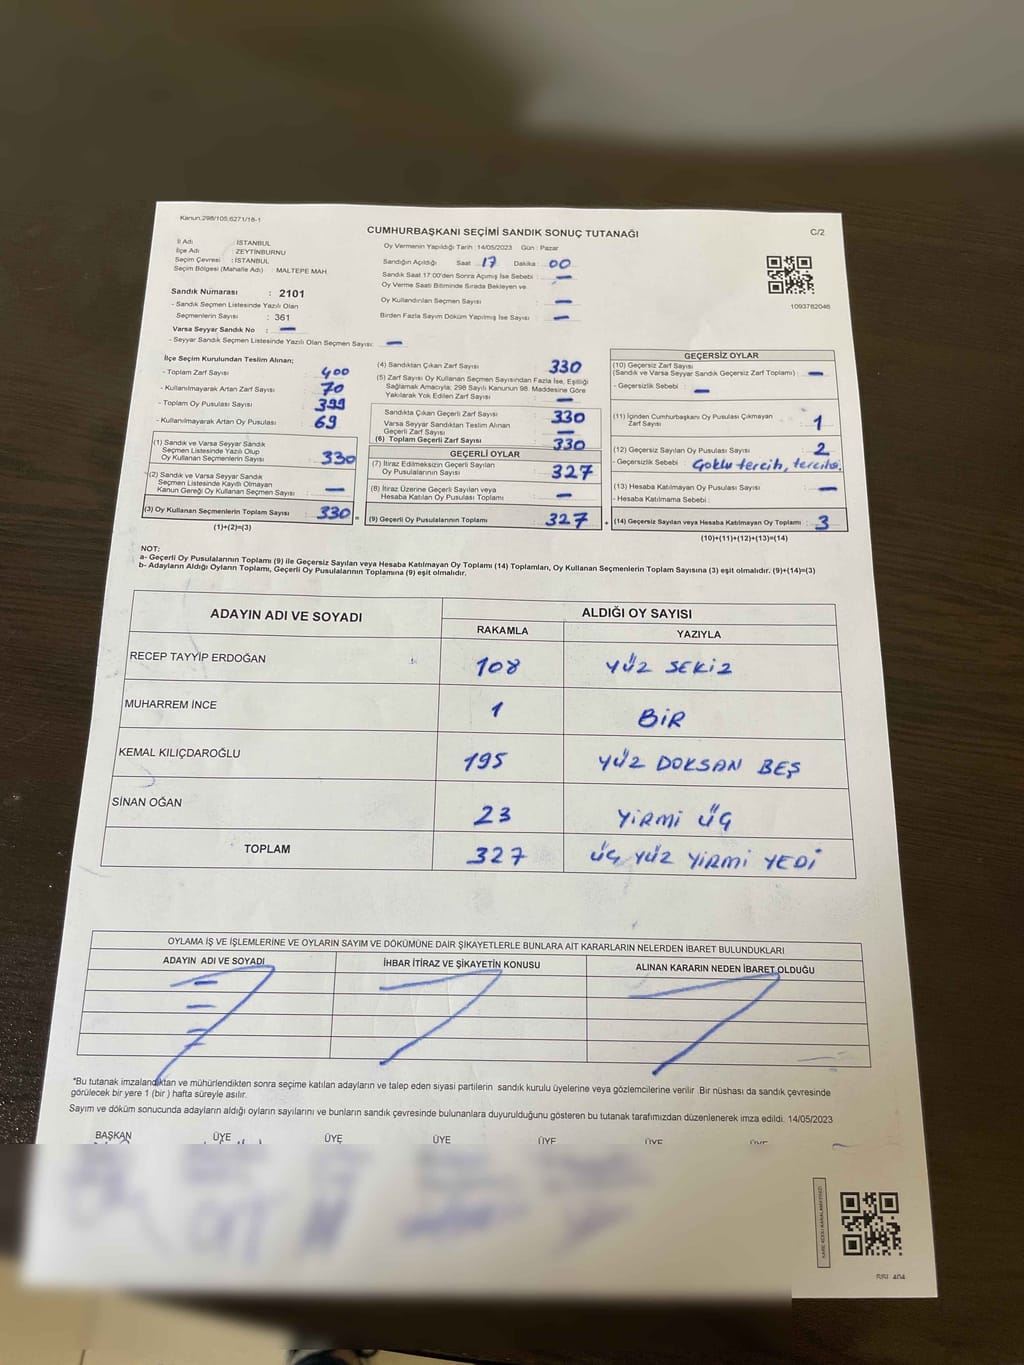 Kanun.298/105,6271/18-1
CUMHURBAŞKANI SEÇİMİ SANDIK SONUÇ TUTANAĞI
C/2
İl Adı : İSTANBUL
İlçe Adı : ZEYTİNBURNU
Seçim Çevresi : İSTANBUL
Seçim Bölgesi (Mahalle Adı) : MALTEPE MAH.
Sandık Numarası : 2101
- Sandık Seçmen Listesinde Yazılı Olan
Seçmenlerin Sayısı : 361
Varsa Seyyar Sandık No : —
- Seyyar Sandık Seçmen Listesinde Yazılı Olan Seçmen Sayısı: —
Oy Vermenin Yapıldığı Tarih : 14/05/2023 Gün : Pazar
Sandığın Açıldığı Saat : 17 Dakika : 00
Sandık Saat 17:00'den Sonra Açımış İse Sebebi : —
Oy Verme Saati Bitiminde Sırada Bekleyen ve
Oy Kullandırılan Seçmen Sayısı : —
Birden Fazla Sayım Döküm Yapılmış İse Sayısı : —
1093782046
İlçe Seçim Kurulundan Teslim Alınan;
- Toplam Zarf Sayısı : 400
- Kullanılmayarak Artan Zarf Sayısı : 70
- Toplam Oy Pusulası Sayısı : 399
- Kullanılmayarak Artan Oy Pusulası : 69
(1) Sandık ve Varsa Seyyar Sandık
Seçmen Listesinde Yazılı Olup
Oy Kullanan Seçmenlerin Sayısı : 330
(2) Sandık ve Varsa Seyyar Sandık
Seçmen Listesinde Kayıtlı Olmayan
Kanun Gereği Oy Kullanan Seçmen Sayısı : —
(3) Oy Kullanan Seçmenlerin Toplam Sayısı : 330
(1)+(2)=(3)
(4) Sandıktan Çıkan Zarf Sayısı : 330
(5) Zarf Sayısı Oy Kullanan Seçmen Sayısından Fazla İse, Eşitliği
Sağlamak Amacıyla; 298 Sayılı Kanunun 98. Maddesine Göre
Yakılarak Yok Edilen Zarf Sayısı : —
Sandıkta Çıkan Geçerli Zarf Sayısı : 330
Varsa Seyyar Sandıktan Teslim Alınan
Geçerli Zarf Sayısı : —
(6) Toplam Geçerli Zarf Sayısı : 330
GEÇERLİ OYLAR
(7) İtiraz Edilmeksizin Geçerli Sayılan
Oy Pusulalarının Sayısı : 327
(8) İtiraz Üzerine Geçerli Sayılan veya
Hesaba Katılan Oy Pusulası Toplamı : —
= (9) Geçerli Oy Pusulalarının Toplamı : 327
GEÇERSİZ OYLAR
(10) Geçersiz Zarf Sayısı
(Sandık ve Varsa Seyyar Sandık Geçersiz Zarf Toplamı) : —
- Geçersizlik Sebebi : —
(11) İçinden Cumhurbaşkanı Oy Pusulası Çıkmayan
Zarf Sayısı : 1
(12) Geçersiz Sayılan Oy Pusulası Sayısı : 2
- Geçersizlik Sebebi : Çoklu tercih,
(13) Hesaba Katılmayan Oy Pusulası Sayısı : —
- Hesaba Katılmama Sebebi :
+ (14) Geçersiz Sayılan veya Hesaba Katılmayan Oy Toplamı : 3
(10)+(11)+(12)+(13)=(14)
NOT:
a- Geçerli Oy Pusulalarının Toplamı (9) ile Geçersiz Sayılan veya Hesaba Katılmayan Oy Toplamı (14) Toplamları, Oy Kullanan Seçmenlerin Toplam Sayısına (3) eşit olmalıdır. (9)+(14)=(3)
b- Adayların Aldığı Oyların Toplamı, Geçerli Oy Pusulalarının Toplamına (9) eşit olmalıdır.
ADAYIN ADI VE SOYADI
ALDIĞI OY SAYISI
RAKAMLA
YAZIYLA
RECEP TAYYİP ERDOĞAN 108 YÜZ SEKİZ
MUHARREM İNCE 1 BİR
KEMAL KILIÇDAROĞLU 195 YÜZ DOKSAN BEŞ
SİNAN OĞAN 23 YİRMİ ÜÇ
TOPLAM 327 ÜÇ YÜZ YİRMİ YEDİ
OYLAMA İŞ VE İŞLEMLERİNE VE OYLARIN SAYIM VE DÖKÜMÜNE DAİR ŞİKAYETLERLE BUNLARA AİT KARARLARIN NELERDEN İBARET BULUNDUKLARI
ADAYIN ADI VE SOYADI
İHBAR İTİRAZ VE ŞİKAYETİN KONUSU
ALINAN KARARIN NEDEN İBARET OLDUĞU
*Bu tutanak imzalandıktan ve mühürlendikten sonra seçime katılan adayların ve talep eden siyasi partilerin sandık kurulu üyelerine veya gözlemcilerine verilir. Bir nüshası da sandık çevresinde
görülecek bir yere 1 (bir) hafta süreyle asılır.
Sayım ve döküm sonucunda adayların aldığı oyların sayılarını ve bunların sandık çevresinde bulunanlara duyurulduğunu gösteren bu tutanak tarafımızdan düzenlenerek imza edildi. 14/05/2023
BAŞKAN ÜYE ÜYE ÜYE ÜYE ÜYE ÜYE
KARE KODU KARALAMAYINIZ!